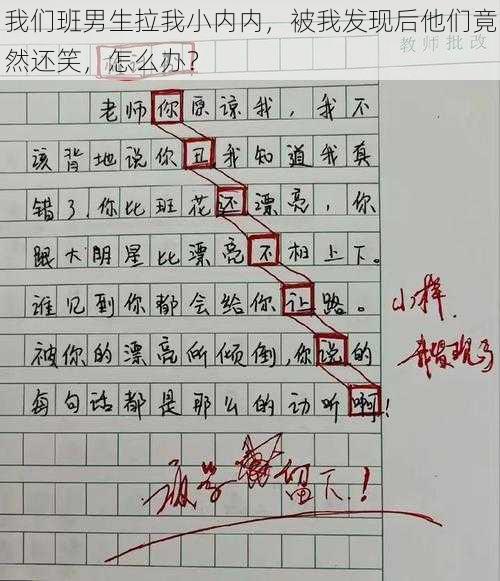 我们班男生拉我小内内，被我发现后他们竟
然还笑，怎么办？
教师批改
老师你原谅我，我不
该背地说你丑我知道我真
错了.你比班花还漂亮，你
跟大明星比漂亮不相上下。
谁见到你都会给你让路。
被你的漂亮所倾倒,你说的
每句话都是那么的动听啊!
小样.
我发现了
放学留下!